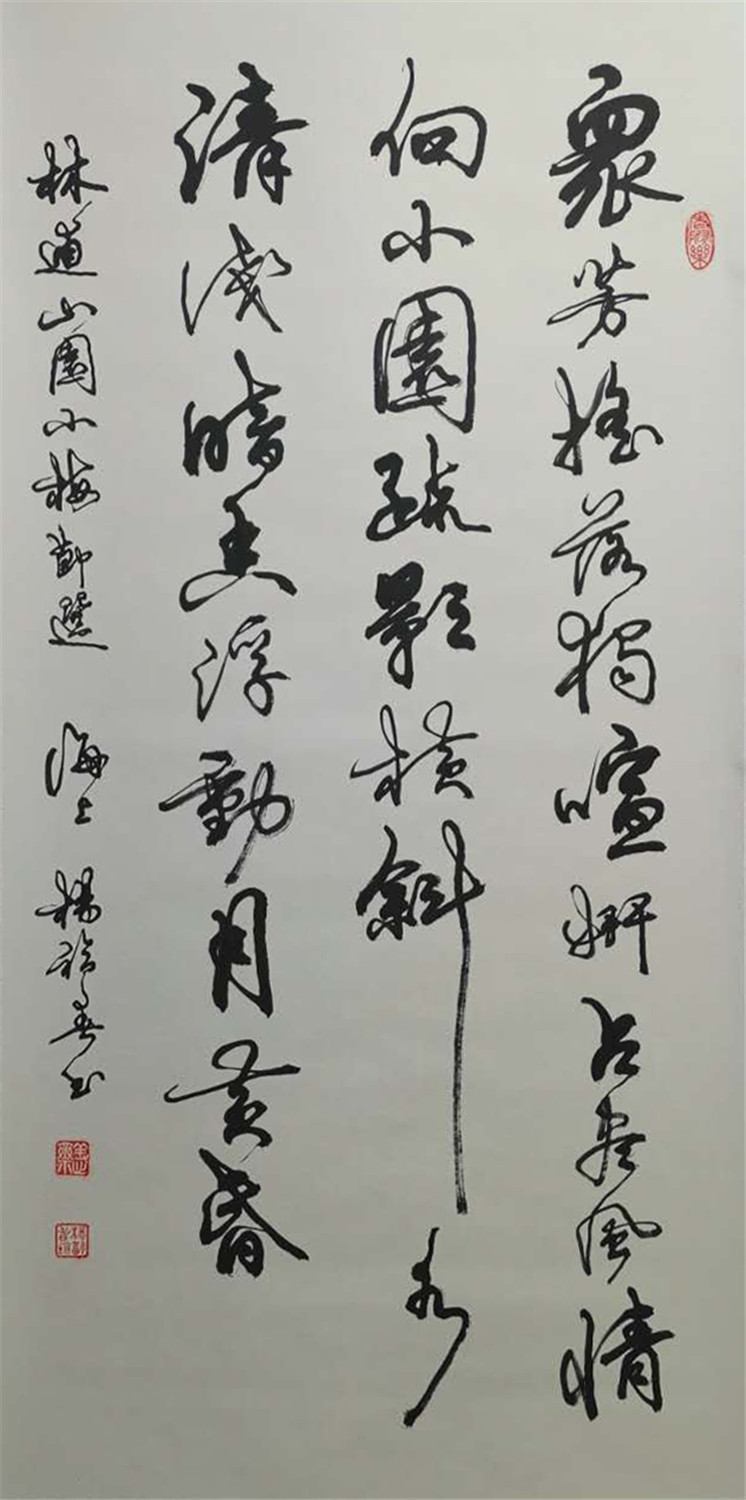 眾芳搖落獨喧妍占盡風情
向小園疏影橫斜水
清淺暗香浮動月黃昏
林逋山園小梅節選 海上楊祖春書